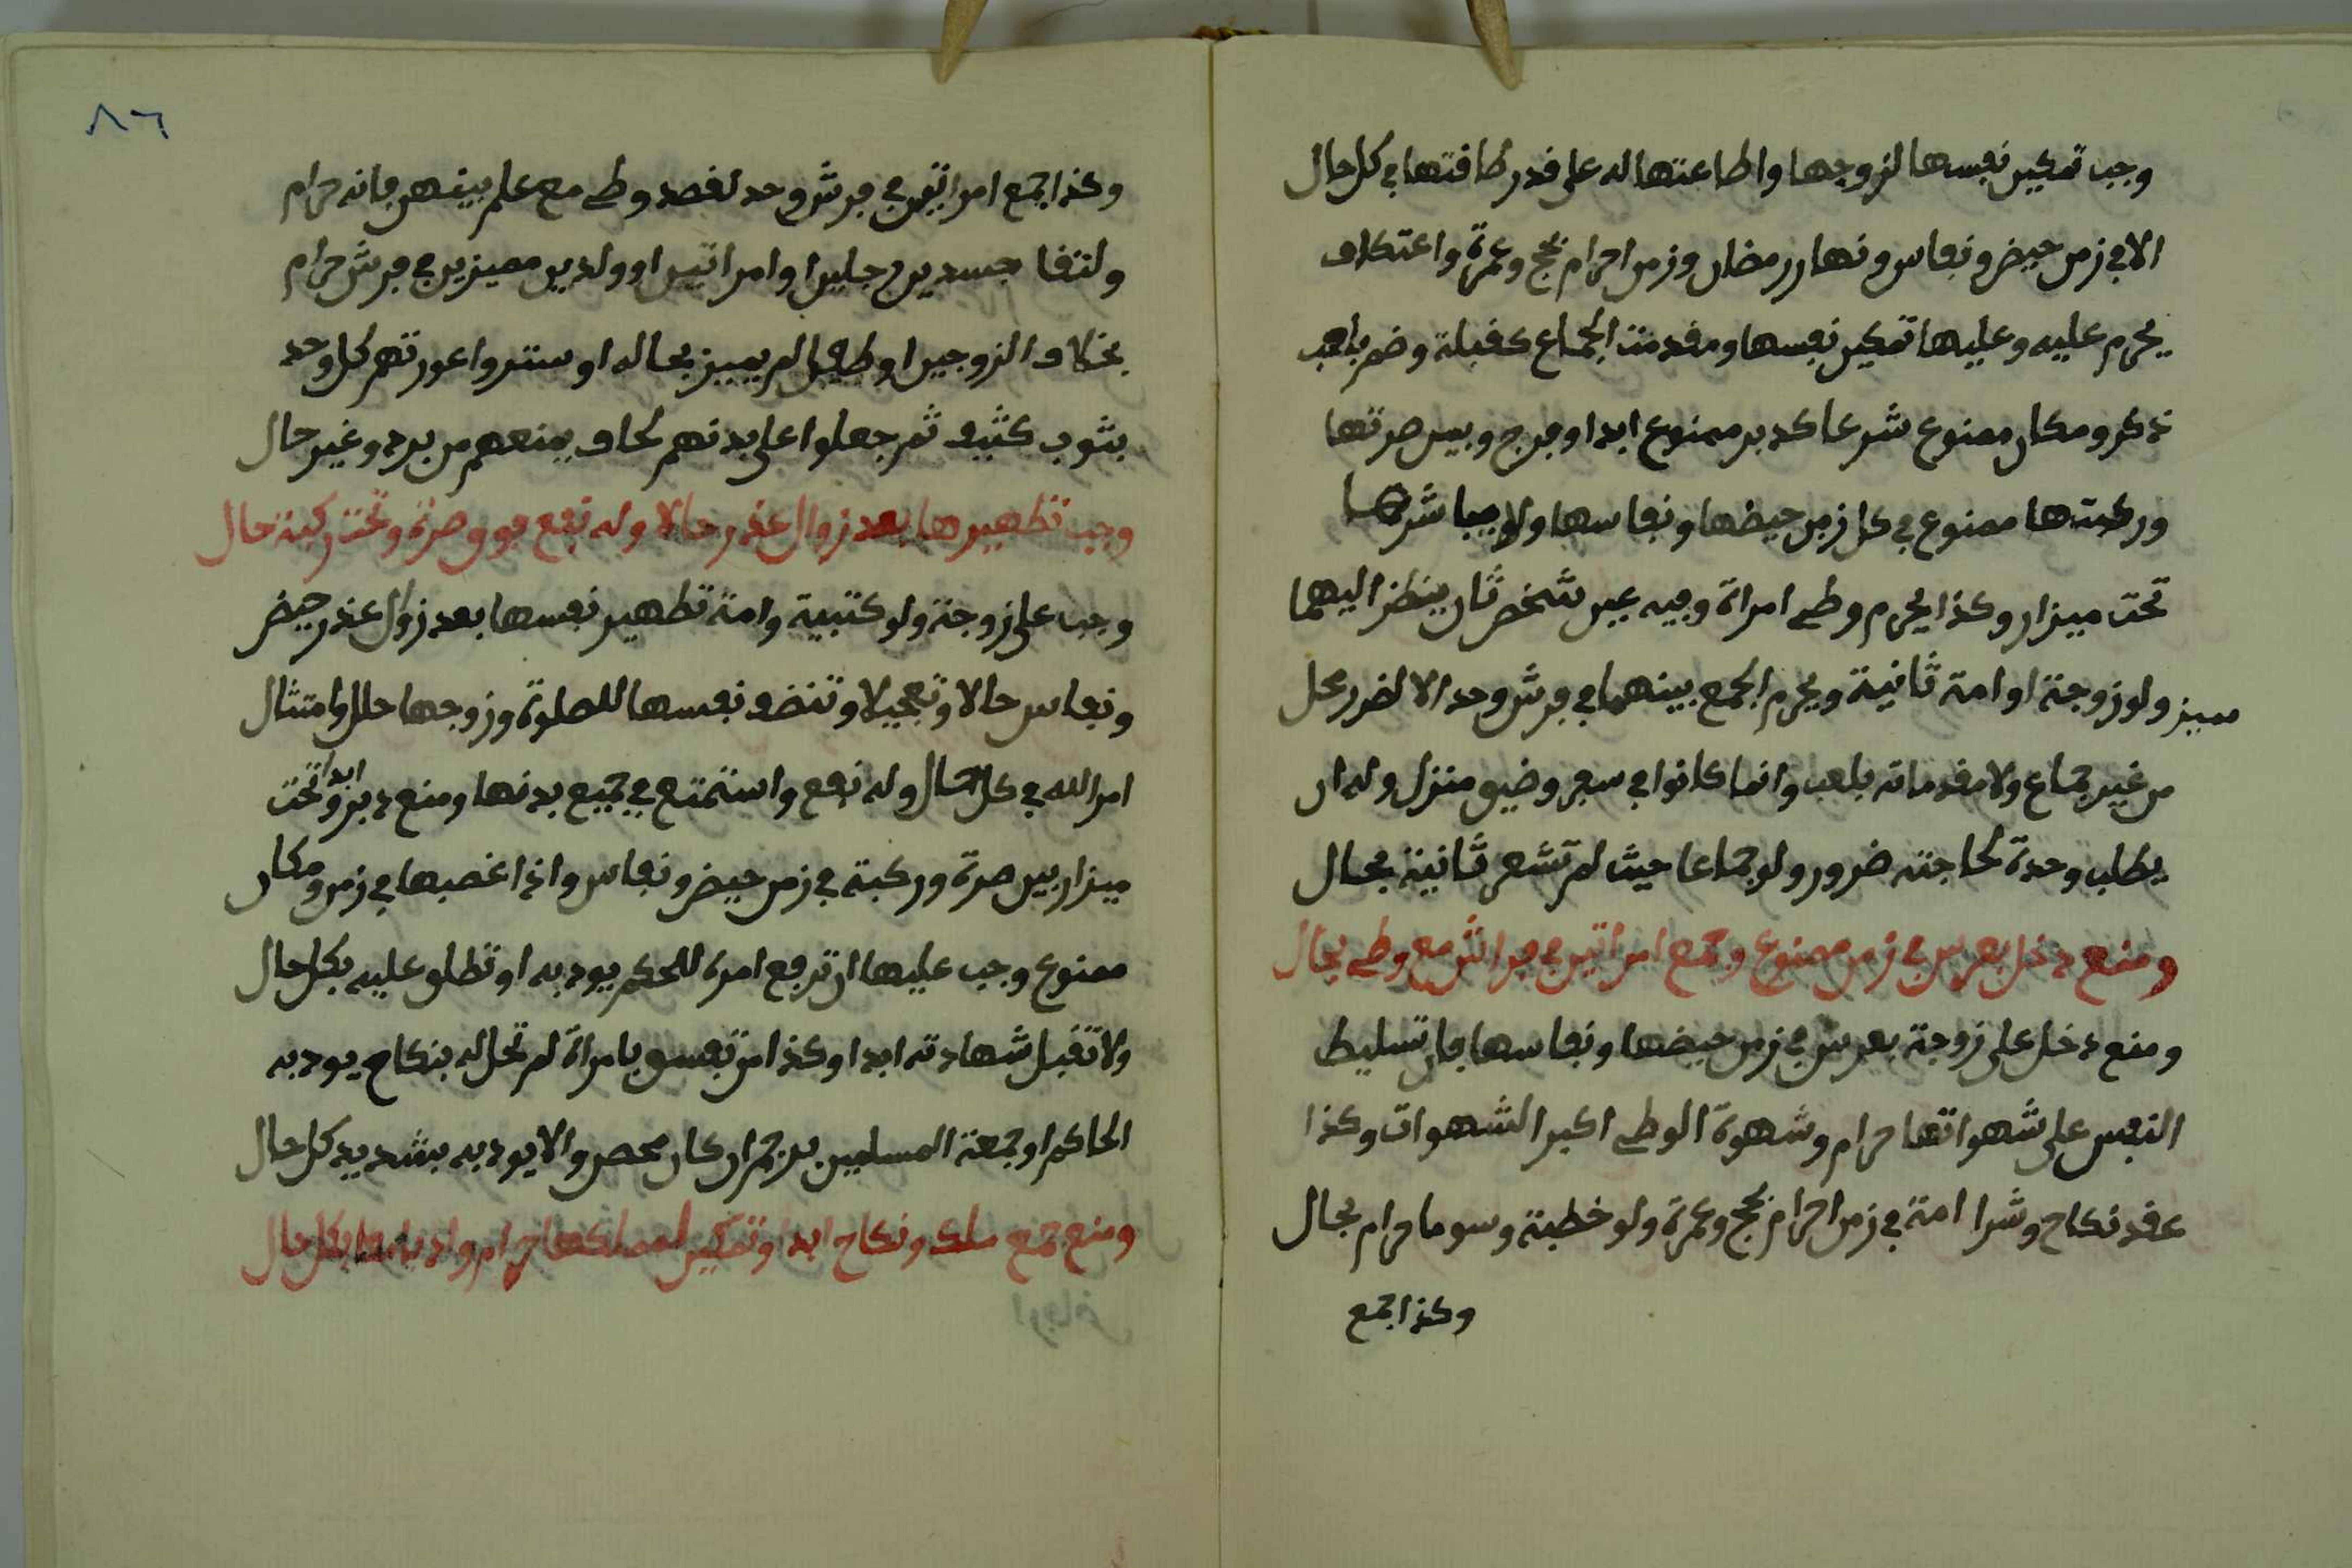 وجب تمكين نفسها لزوجها واطاعتها له على قدر طاقتها في كل حال
الا في زمن حيض ونفاس ونهار رمضان وزمن احرام بحج وعمرة واعتكاف
يحرم عليه وعليها تمكين نفسها ومقدمت الجماع كقبلة وضم بلعب
ذكر ومكان ممنوع شرعا كدبر ممنوع ابدا وفرج وبين صرتها
وركبتها ممنوع في كل زمن حيضها ونفاسها ولا يباشرها
تحت ميزار وكذا يحرم وطي امراة وفيه عين شخص ثان ينظر اليهما
مميز ولو زوجة او امة ثانية ويحرم الجمع بينهما في فرش وحد الا لضرر محل
من غير جماع ولا مقدماته بلعب وانما كانوا في سفر وضيق منزل وله ان
يطلب وحدة لحاجته ضرور ولو جماعا حيث لم تشعر ثانية بحال
ومنع دخل بعرس في زمن ممنوع وجمع امراتين في فراش مع وطي بحال
ومنع دخل على زوجة بعرس في زمن حيضها ونفاسها فان تسليط
النفس على شهواتها حرام وشهوة الوطي اكبر الشهوات وكذا
عقد نكاح وشرا امة في زمن احرام بحج وعمرة ولو خطبة وسوما حرام بحال
وكذا جمع
٨٦
وكذا جمع امراتين في فرش وحد لقصد وطي مع علم بينهن فانه حرام
ولتقا جسدين رجلين او امراتين او ولدين مميزين في فرش حرام
بخلاف الزوجين او طفل لم يميز بحاله او ستروا عورتهم كل وحد
بثوب كثيف ثم جعلوا على بدنهم لحاف يمنعهم من برد وغير حال
وجب تطهيرها بعد زوال عذر حالا وله نفع فوق صرة وتحت ركبة حال
وجب على زوجة ولو كتبية وامة تطهير نفسها بعد زوال عذر حيض
ونفاس حالا وتعجيلا وتنضف نفسها للصلوة وزوجها حلل وامتثال
امر الله في كل حال وله نفع واستمتع في جميع بدنها ومنع دبر ابدا وتحت
ميزار بين صرة وركبة في زمن حيض ونفاس واذا غصبها في زمن ومكان
ممنوع وجب عليها ان ترفع امره للحكم يودبه او تطلق عليه بكل حال
ولا تقبل شهادته ابدا وكذا من تفسق بامراة لم تحل له بنكاح يودبه
الحاكم او جمعة المسلمين برجم ان كان محصن والا يودبه بشديد كل حال
ومنع جمع ملك ونكاح ابدا وتمكين لمملكها حرام